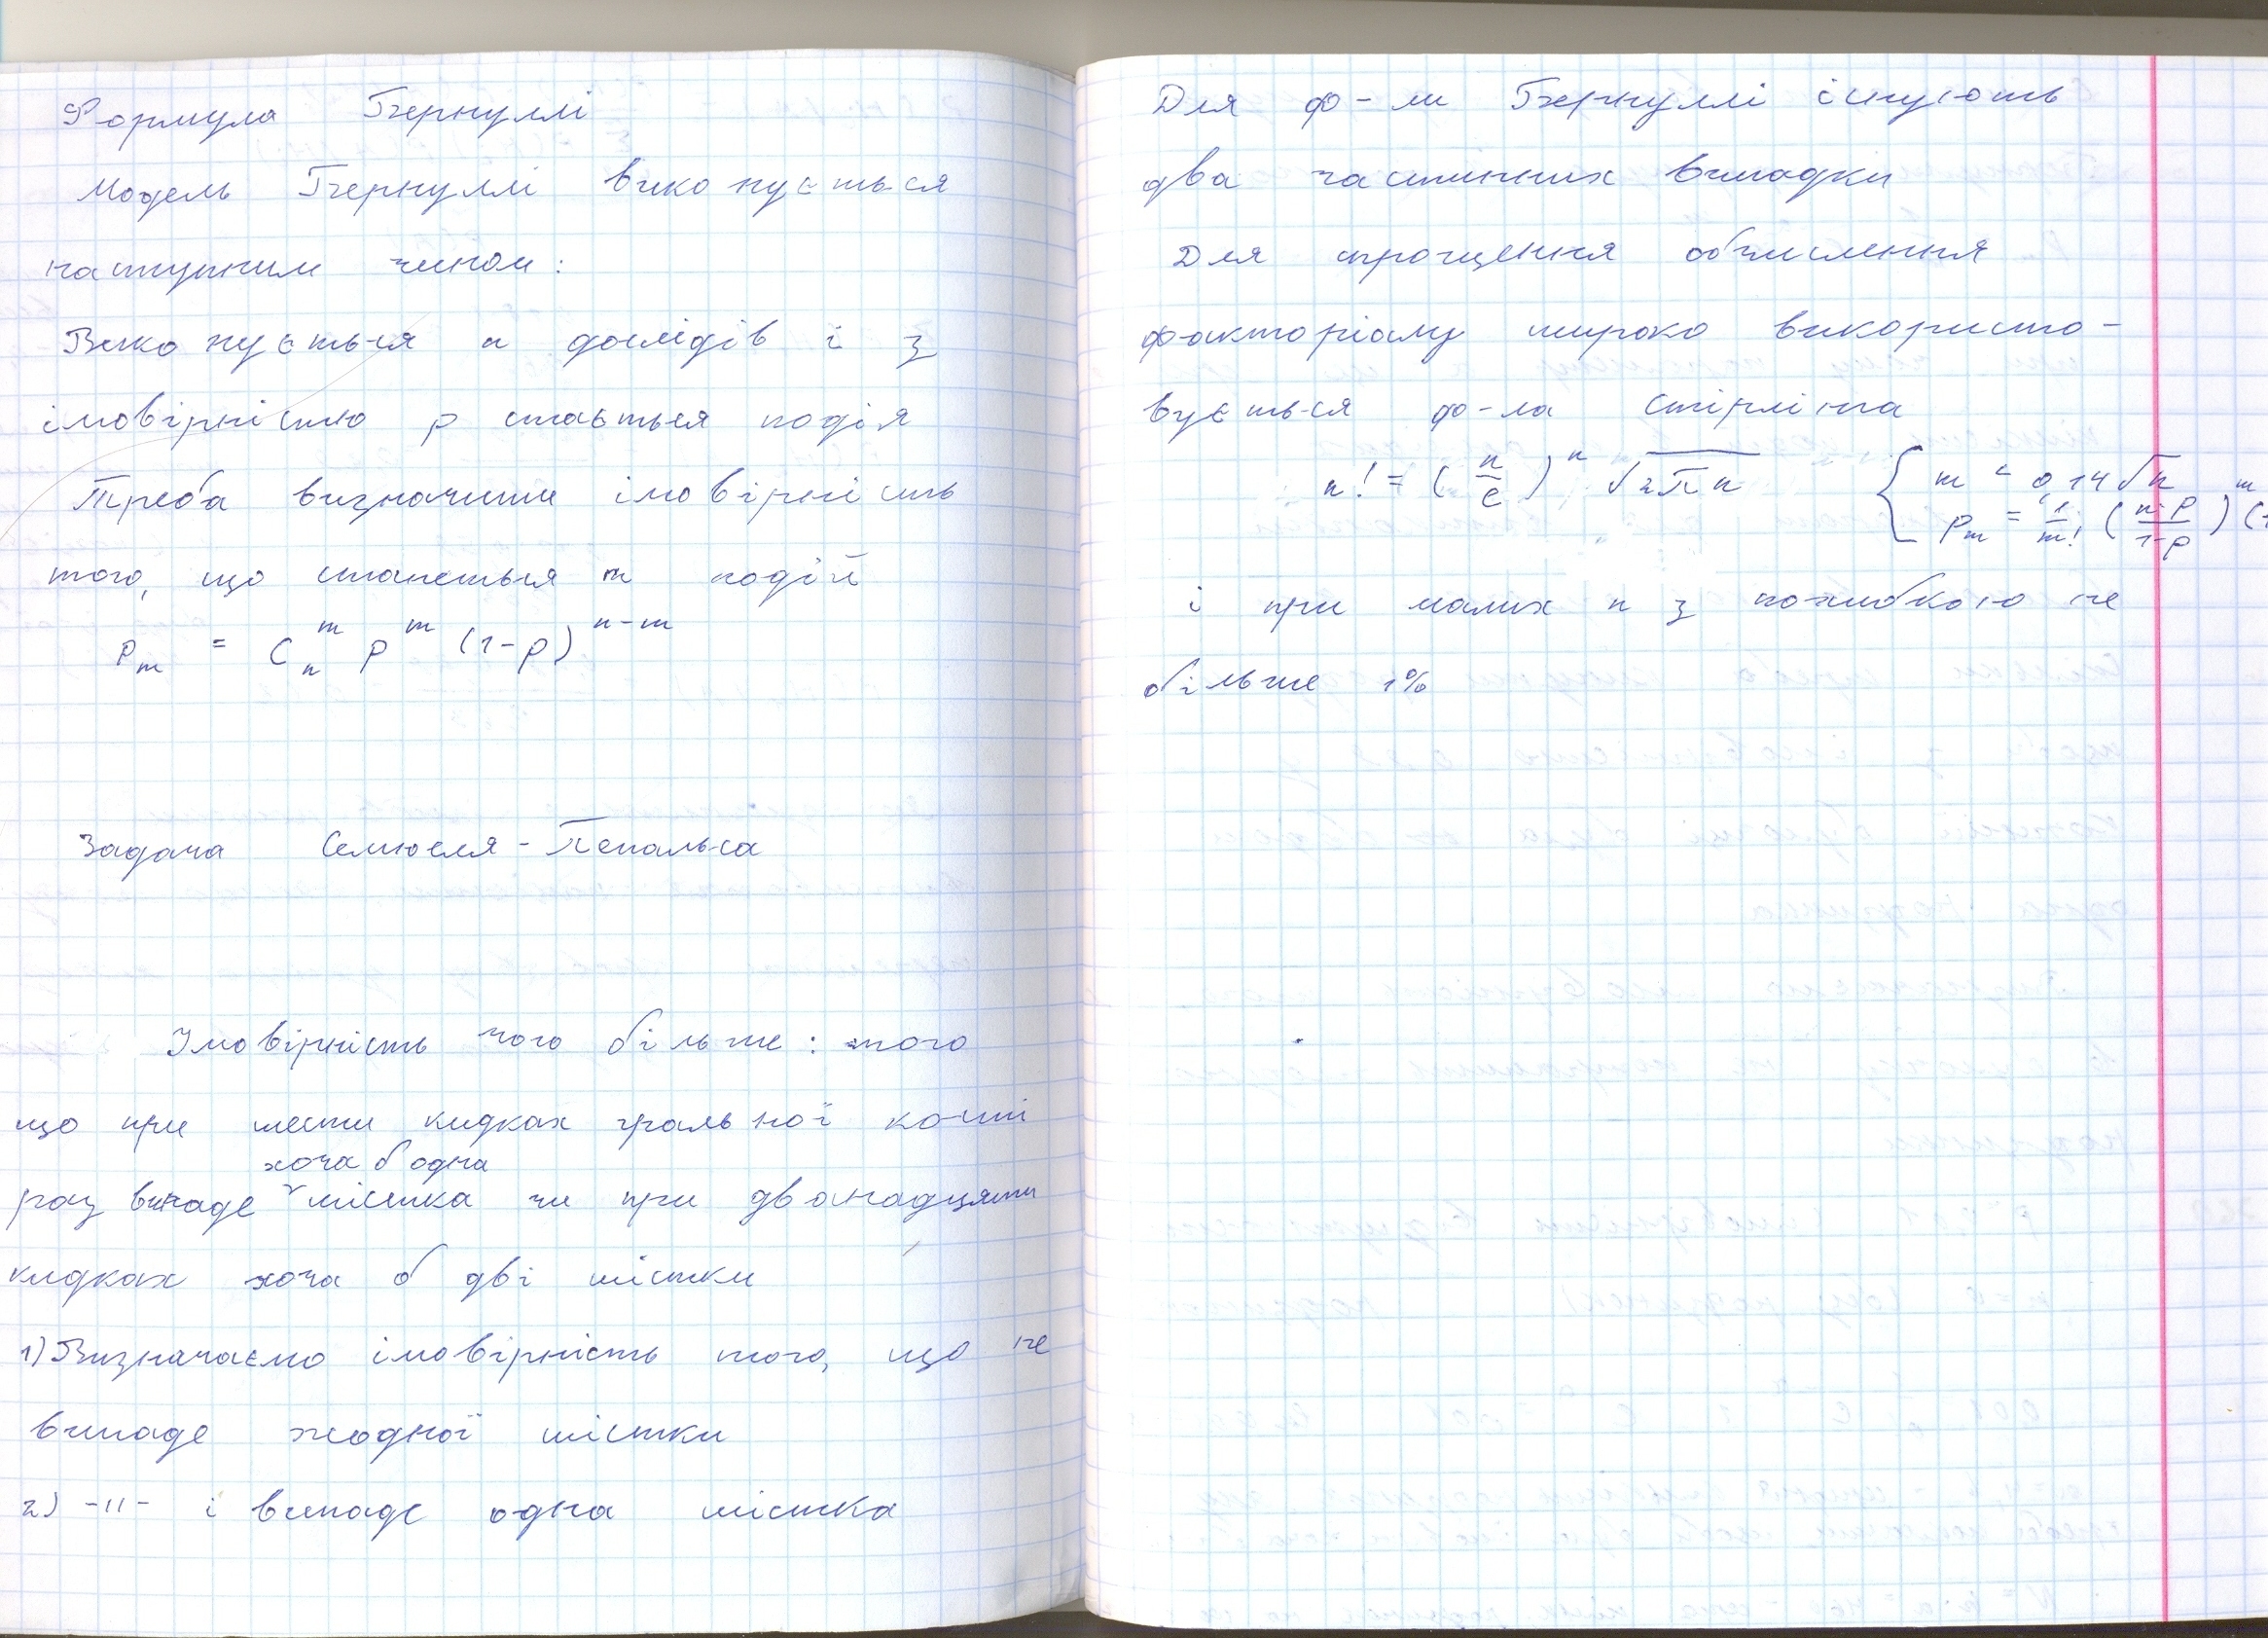 Формула Бернуллі
Модель Бернуллі виконується
наступним чином:
Виконується n дослідів і з
імовірністю p стається подія
Треба визначити імовірність
того, що станеться m подій
P_m = C_n^m p^m (1-p)^{n-m}
Задача Семюеля-Пепальса
Імовірність чого більше: того
що при шести кидках гральної кості
хоча б одна
раз випаде шістка чи при дванадцяти
кидках хоча б дві шістки
1) Визначаємо імовірність того, що не
випаде жодної шістки
2) -11- і випаде одна шістка
Для ф-ли Бернуллі існують
два частинних випадки
Для спрощення обчислення
факторіалу широко використо-
вується ф-ла Стірлінга
n! = (n/e)^n √2πn
{ m < 0,14√n
P_m = 1/m! (n·p/1-p)^m (1
і при малих n з похибкою не
більше 1%